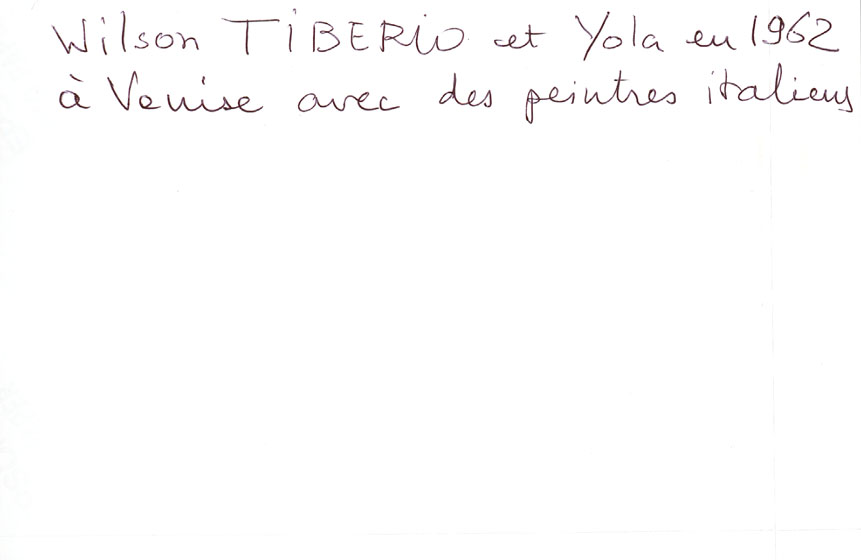 Wilson TIBERIO et Yola en 1962
à Venise avec des peintres italiens